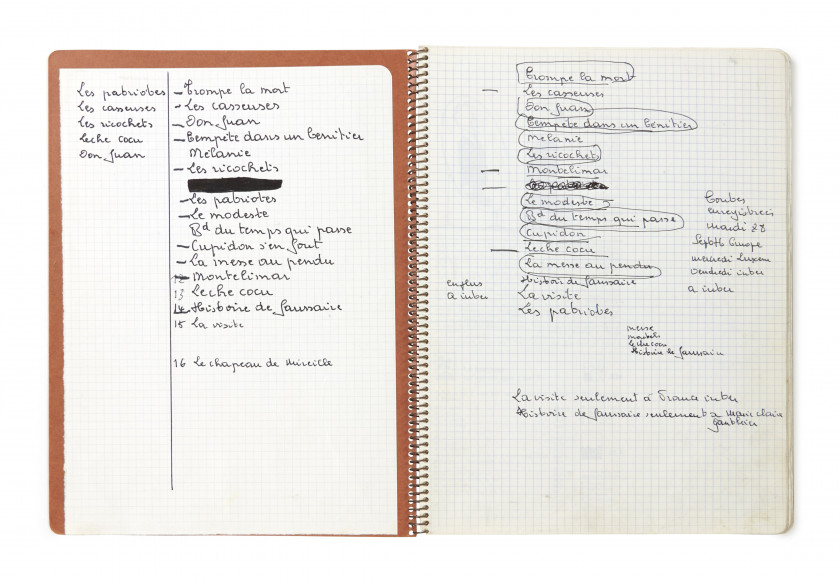 Les patriotes
Les casseuses
Les ricochets
Lèche cocu
Don Juan
Trompe la mort
Les casseuses
Don Juan
Tempête dans un bénitier
Mélanie
Les ricochets
Les patriotes
Le modeste
Bd du temps qui passe
Cupidon s'en fout
La messe au pendu
12 Montélimar
13 Lèche cocu
14 Histoire de faussaire
15 La visite
16 Le chapeau de Mireille
Trompe la mort
Les casseuses
Don Juan
Tempête dans un bénitier
Mélanie
Les ricochets
Montélimar
Le modeste
Bd du temps qui passe
Cupidon
Lèche cocu
La messe au pendu
Histoire de faussaire
La visite
Les patriotes
en plus
à inter
Toutes
enregistrées
mardi 28
Europe
mercredi Luxem
vendredi inter
à inter
messe
lèche cocu
Histoire de faussaire
La visite seulement à France inter
Histoire de faussaire seulement à Marie Claire